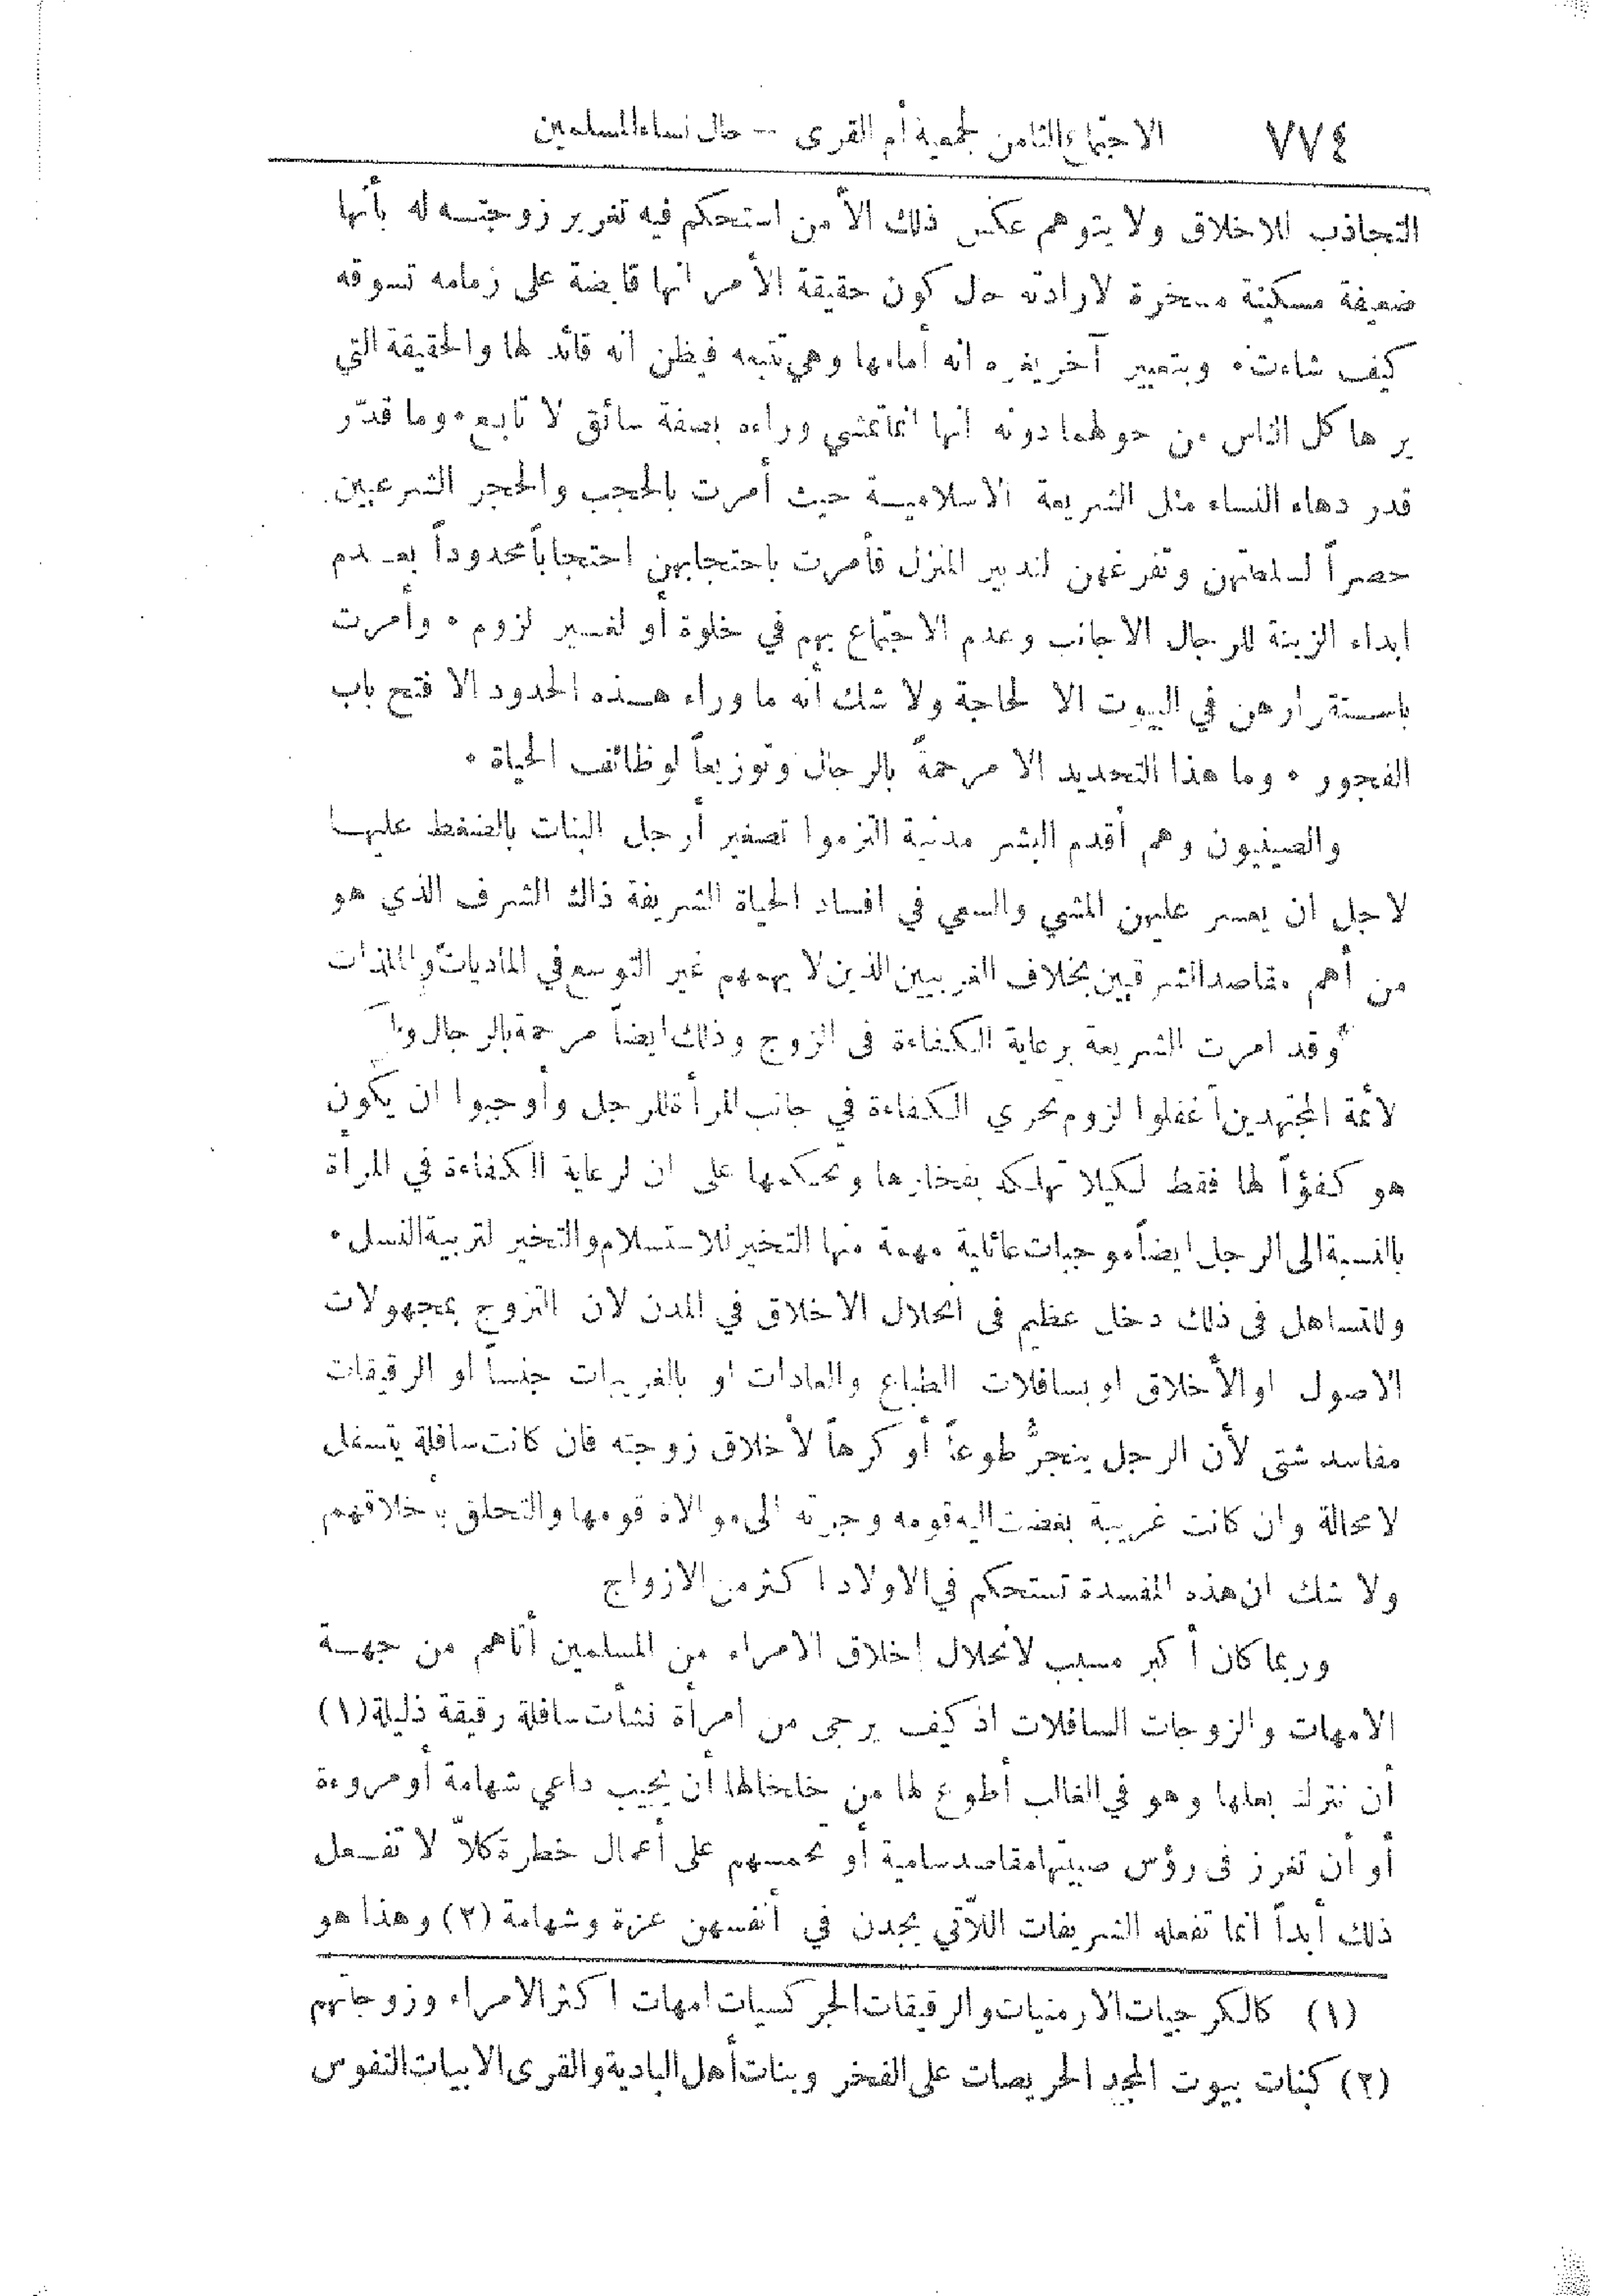 ٧٧٤ الاجتماع الثامن لجمعية أم القرى -- حال نساء المسلمين
التجاذب للاخلاق ولا يتوهم عكس ذلك الأمن استحكم فيه تغرير زوجتـه له بأنها
ضعيفة مسكينة مسخرة لارادته حال كون حقيقة الأمر انها قابضة على زمامه تسوقه
كيف شاءت. وبتعبير آخر يغره انه أمامها وهي تتبعه فيظن انه قائد لها والحقيقة التي
يرها كل الناس من حولهما دونه انها انما تمشي وراءه بصفة سائق لا تابع. وما قدّر
قدر دهاء النساء مثل الشريعة الاسلاميـة حيث أمرت بالحجب والحجر الشرعيين
حصراً لسلطتهن وتفرغهن لتدبير المنزل فأمرت باحتجابهن احتجاباً محدوداً بعـدم
ابداء الزينة للرجال الاجانب وعدم الاجتماع بهم في خلوة أو لغـير لزوم. وأمرت
باستـقرارهن في البيوت الا لحاجة ولا شك أنه ما وراء هـذه الحدود الا فتح باب
الفجور. وما هذا التحديد الا مرحمةً بالرجال وتوزيعاً لوظائف الحياة.
والصينيون وهم أقدم البشر مدنية التزموا تصغير أرجل البنات بالضغط عليهـا
لاجل ان يعسر عليهن المشي والسعي في افساد الحياة الشريفة ذاك الشرف الذي هو
من أهم مقاصد الشرقيين بخلاف الغربيين الذين لا يهمهم غير التوسع في الماديات والملذات
وقد امرت الشريعة برعاية الكفاءة فى الزوج وذلك ايضاً مرحمة بالرجال
لأئمة المجتهدين أغفلوا لزوم تحري الكفاءة في جانب المرأة للرجل وأوجبوا ان يكون
هو كفؤاً لها فقط لكيلا تهلكه بفخارها وتحكمها على ان لرعاية الكفاءة في المرأة
بالنسبة الى الرجل ايضاً موجبات عائلية مهمة منها التخير للاستسلام والتخير لتربية النسل.
وللتساهل فى ذلك دخل عظيم فى انحلال الاخلاق في المدن لان التزوج بمجهولات
الاصول او الأخلاق او بسافلات الطباع والعادات او بالغريبات جنساً او الرقيقات
مفاسد شتى لأن الرجل ينجرُّ طوعاً أو كرهاً لأخلاق زوجته فان كانت سافلة يتسفل
لا محالة وان كانت غريبة بغضت اليه قومه وجرته الى موالاة قومها والتخلق بأخلاقهم
ولا شك ان هذه المفسدة تستحكم في الاولاد اكثر من الازواج
وربما كان أكبر مسبب لانحلال إخلاق الامراء من المسلمين أتاهم من جهـة
الامهات والزوجات السافلات اذ كيف يرجى من امرأة نشأت سافلة رقيقة ذليلة (١)
أن تترك بعلها وهو في الغالب أطوع لها من خلخالها أن يجيب داعي شهامة أو مروءة
أو أن تغرز فى رؤس صبيتها مقاصد سامية أو تحمسهم على أعمال خطرة كلاّ لا تفـعل
ذلك أبداً انما تفعله الشريفات اللاّتي يجدن في أنفسهن عزة وشهامة (٢) وهذا هو
(١) كالكرجيات الارمنيات والرقيقات الجركسيات امهات اكثر الامراء وزوجاتهم
(٢) كبنات بيوت المجد الحريصات على الفخر وبنات أهل البادية والقرى الابيات النفوس